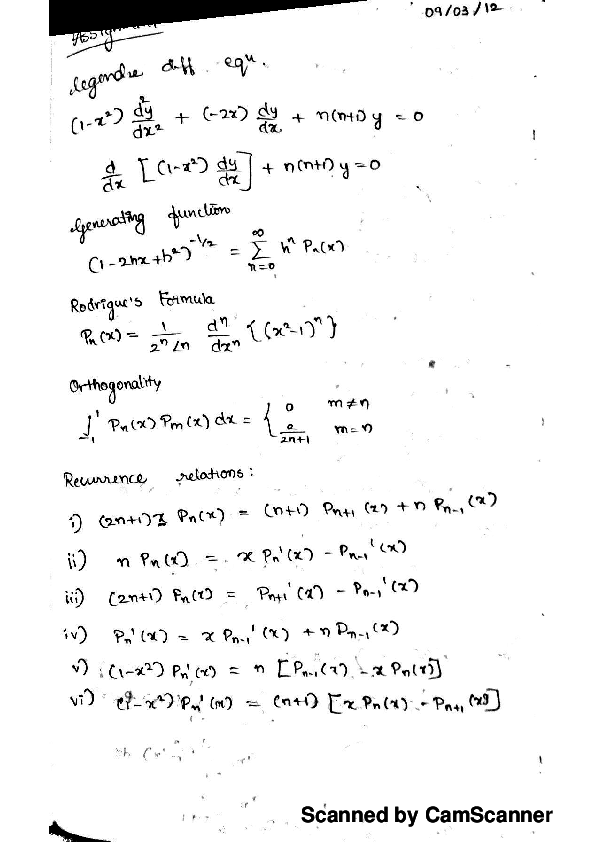 09/03/12
Assignment
Legendre diff. equ.
(1-x²) d²y/dx² + (-2x) dy/dx + n(n+1) y = 0
d/dx [(1-x²) dy/dx] + n(n+1) y = 0
Generating function
(1-2hx+h²)^(-1/2) = ∑_{n=0}^{∞} hⁿ Pₙ(x)
Rodrigue's Formula
Pₙ(x) = 1/(2ⁿ ∠n) dⁿ/dxⁿ {(x²-1)ⁿ}
Orthogonality
∫_{-1}^{1} Pₙ(x) Pₘ(x) dx = { 0 m≠n
2/(2n+1) m=n
Recurrence relations:
i) (2n+1)x Pₙ(x) = (n+1) Pₙ₊₁(x) + n Pₙ₋₁(x)
ii) n Pₙ(x) = x Pₙ'(x) - Pₙ₋₁'(x)
iii) (2n+1) Pₙ(x) = Pₙ₊₁'(x) - Pₙ₋₁'(x)
iv) Pₙ'(x) = x Pₙ₋₁'(x) + n Pₙ₋₁(x)
v) (1-x²) Pₙ'(x) = n [Pₙ₋₁(x) - x Pₙ(x)]
vi) (1-x²) Pₙ'(x) = (n+1) [x Pₙ(x) - Pₙ₊₁(x)]
Scanned by CamScanner